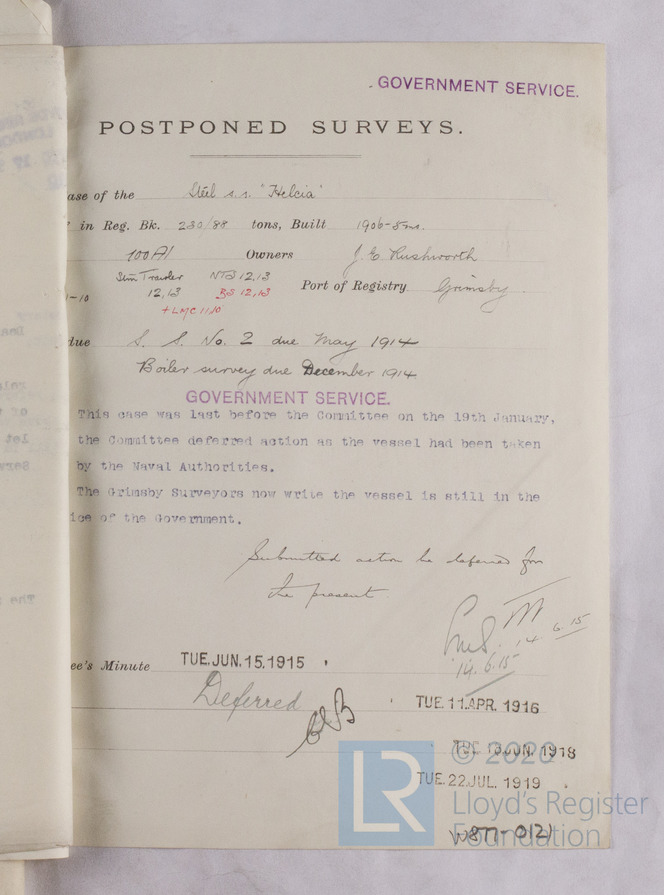 GOVERNMENT SERVICE.
POSTPONED SURVEYS.
ase of the Steel s.s. "Helcia"
in Reg. Bk. 230/88 tons, Built 1906-5mo.
100A1 Owners J. E. Rushworth
Stm Trawler NTS 12,13
-10 12,13 BS 12,13 Port of Registry Grimsby.
+LMC 11,10
due S. S. No. 2 due May 1914
Boiler survey due December 1914
GOVERNMENT SERVICE.
This case was last before the Committee on the 19th January,
the Committee deferred action as the vessel had been taken
by the Naval Authorities.
The Grimsby Surveyors now write the vessel is still in the
ice of the Government.
Submitted action be deferred for
the present.
14.6.15
14.6.15
ee's Minute TUE. JUN. 15. 1915
Deferred
TUE. 11 APR. 1916
TUE. JUN. 1918
© 2020
TUE. 22 JUL. 1919
LR
Lloyd's Register
Foundation
W877-0121